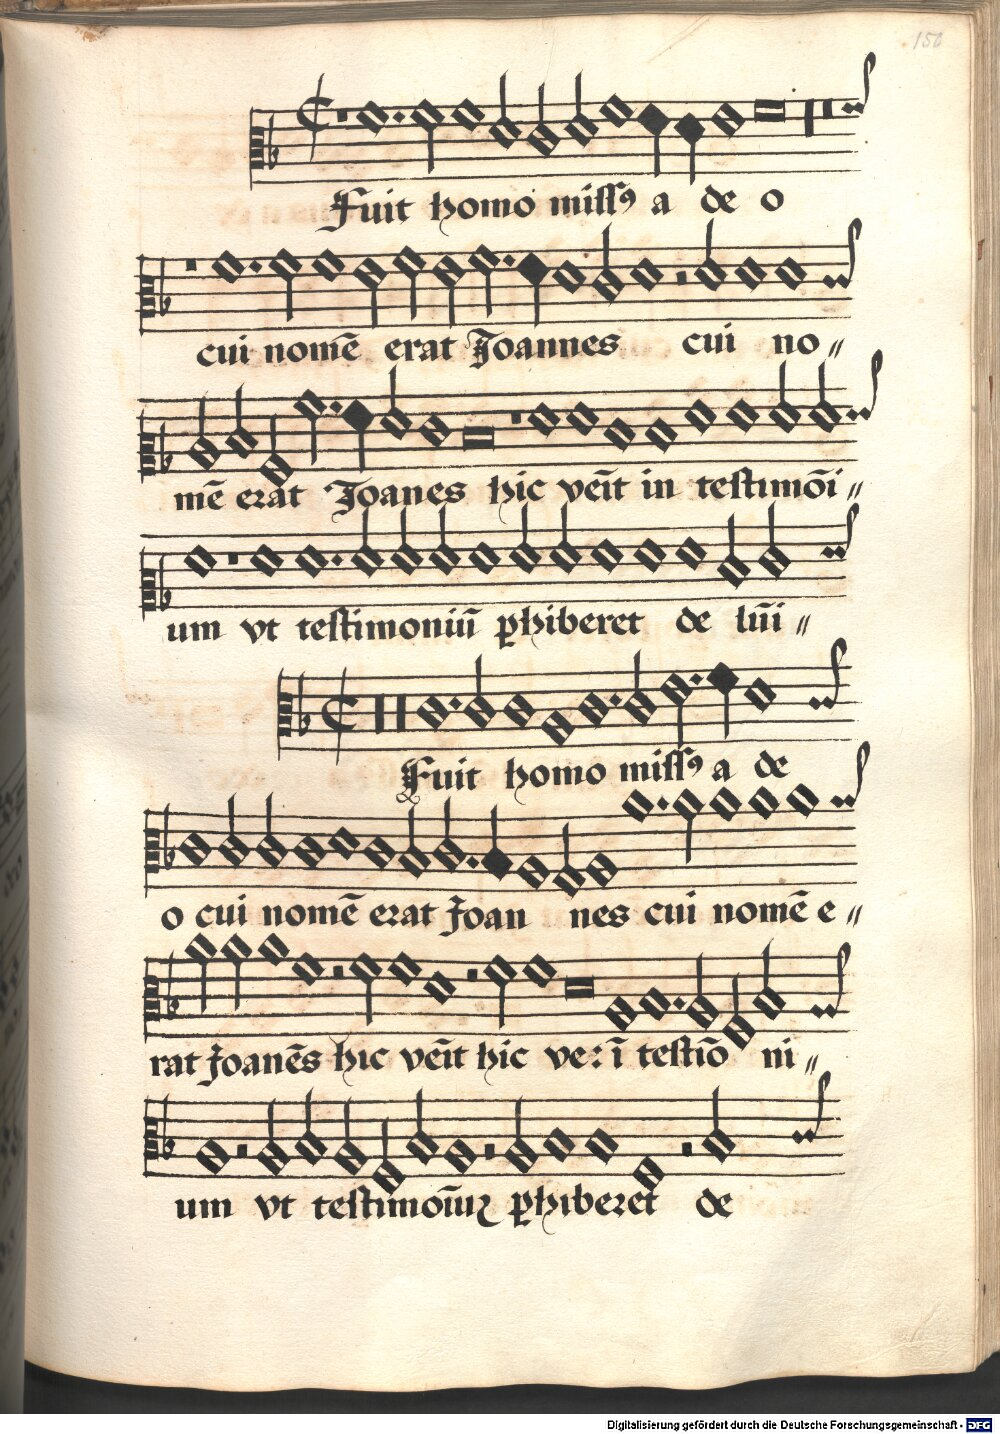 150
Fuit homo miss⁹ a de o
cui nomē erat Joannes cui no〃
mē erat Joanes hic veīt in testimōi〃
um vt testimoniū ꝑhiberet de lūi〃
Fuit homo miss⁹ a de
o cui nomē erat Joan nes cui nomē e〃
rat Joanēs hic veīt hic ve: ī testīo ni〃
um vt testimoīuꝝ ꝑhiberet de
Digitalisierung gefördert durch die Deutsche Forschungsgemeinschaft - DFG